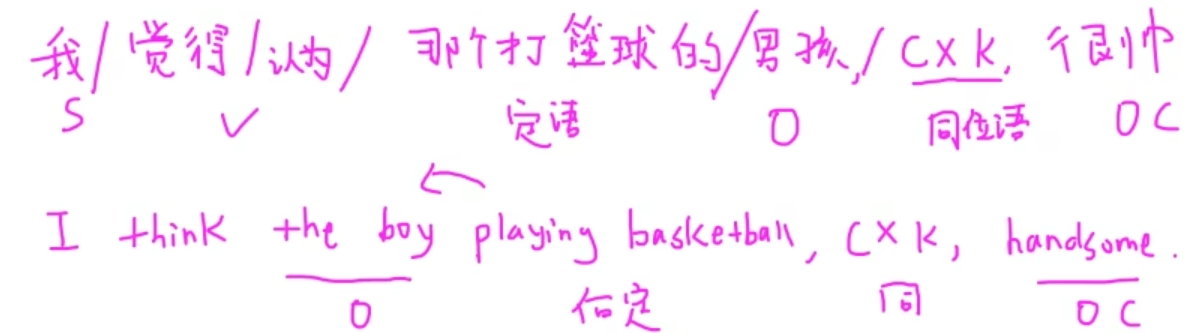 我/觉得/认为/ 那个打篮球的/男孩,/CXK, 很帅
S V 定语 O 同位语 OC
I think the boy playing basketball, CXK, handsome.
O 后定 同 OC